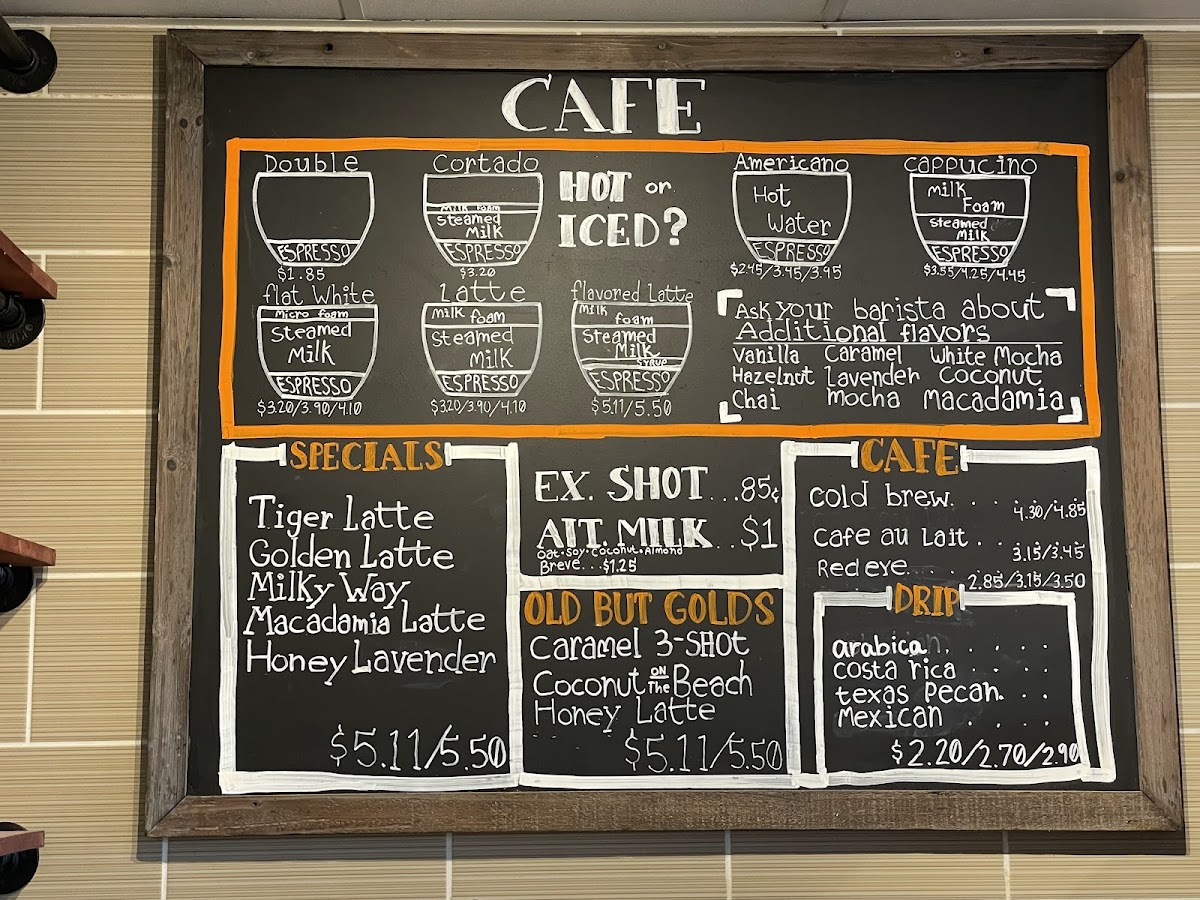 CAFE
Double
ESPRESSO
$1.85
Cortado
Milk Foam
Steamed
Milk
ESPRESSO
$3.20
HOT or
ICED?
Americano
Hot
Water
ESPRESSO
$2.45/3.45/3.95
Cappucino
Milk
Foam
Steamed
Milk
ESPRESSO
$3.55/4.25/4.45
flat White
Micro foam
Steamed
Milk
ESPRESSO
$3.20/3.90/4.10
Latte
Milk foam
Steamed
Milk
ESPRESSO
$3.20/3.90/4.10
flavored Latte
Milk
foam
Steamed
Milk
SYRUP
ESPRESSO
$5.11/5.50
Ask your barista about
Additional flavors
Vanilla Caramel White Mocha
Hazelnut Lavender Coconut
Chai Mocha Macadamia
SPECIALS
Tiger Latte
Golden Latte
Milky Way
Macadamia Latte
Honey Lavender
$5.11/5.50
EX. SHOT...85¢
AlT. MILK..$1
Oat·Soy·Coconut·Almond
Breve...$1.25
OLD BUT GOLDS
Caramel 3-SHOT
Coconut ON The Beach
Honey Latte
$5.11/5.50
CAFE
Cold brew. . . . . . .
4.30/4.85
Cafe au Lait . . . . .
3.15/3.45
Red eye. . . . . . . .
2.85/3.15/3.50
DRIP
arabica . . . . .
costa rica . . . .
texas Pecan. . .
Mexican . . . .
$2.20/2.70/2.90